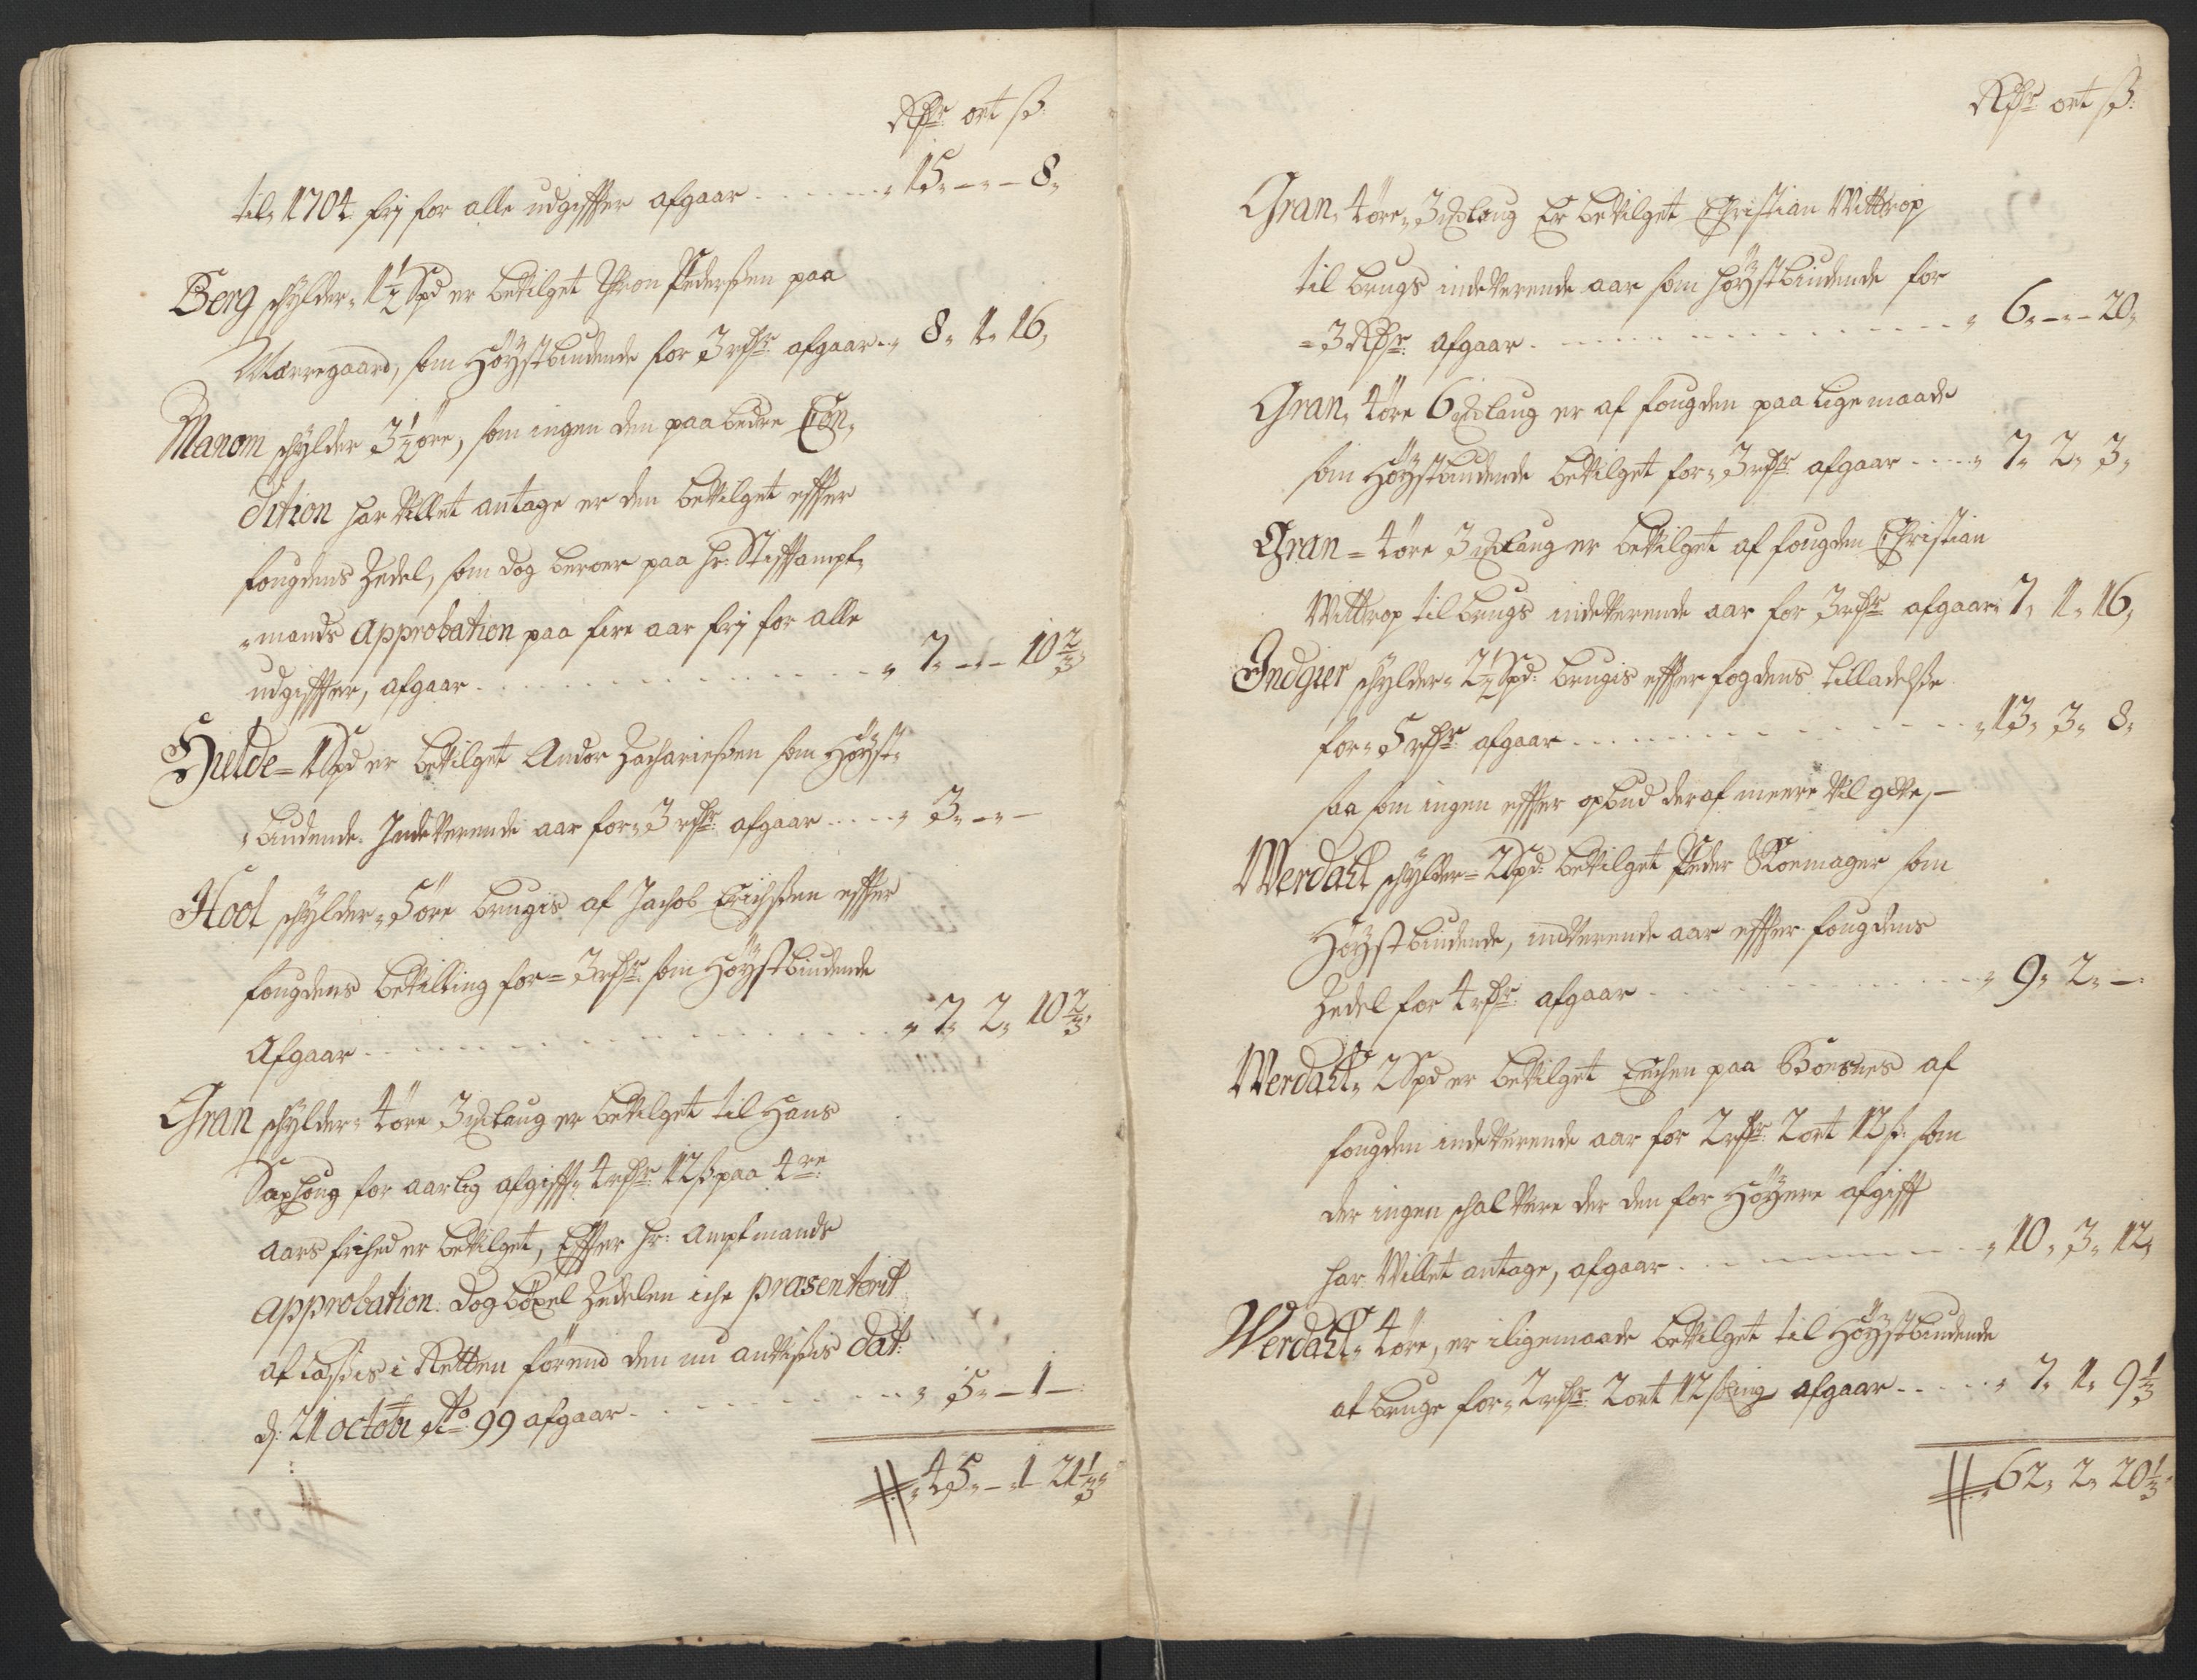 Rdr ort ß:
til 1704 frj for alle udgiffter afgaar - - - - - 15 - - 8
Berg schÿlder 1½ Spd er bevilget Thron Pederßen paa
Marregaard, som Høÿstbiudende for 3 rdr afgaar - 8 - 1 - 16
Manom schÿlder 3½ øre, som ingen den paa bedre Con-
dition har villet antage er den bevilget effter
fougdens Zedel, som dog beroer paa hr: Stifftampt-
mands Approbation paa fire aar frj for alle
udgiffter, afgaar - - - - - 7 - - 10 2/3
Hielde = 1 Spd er bevilget Andor Zacharießen som Høÿst-
biudende Indeverende aar for 3 rdr afgaar - - - 3 - - -
Hool schÿlder 5 øre brugis af Jachob Erichßen effter
fougdens bevilling for = 3 rdr som Høÿstbiudende
Afgaar - - - - - 7 2 10 2/3
Gran schÿlder 4 øre 3 mklaug er bevilget til Hans
Saxhoug for aarlig afgifft 4 rdr 12 ß paa 4re
aars frihed er bevilget, Effter hr: Amptmands
Approbation: dog böxel Zedelen iche præsenterit
at læßis i Retten förend den nu anvißis dat:
d: 21 octobr Ao 99 afgaar - - - - - 5 - 1 -
45 - 1 21 1/3
Rdr ort ß:
Gran 4 øre 3 mklaug Er bevilget Christian Wittrop
til brugs indeverende aar som høÿstbiudende for
= 3 Rdr afgaar - - - - - 6 - - 20
Gran 4 øre 6 mklaug er af fougden paa lige maade
som Høÿstbiudende bevilget for 3 rdr afgaar - - - 7 2 3
Gran = 4 øre 3 mklaug er bevilget af fougden Christian
Wittrop til brugs indeverende aar for 3 rdr afgaar 7 1 16
Indgier schÿlder 2½ Spd brugis effter fogdens tilladelße
for 5 rdr afgaar - - - - - 13 3 8
saa som ingen effter opbud deraf meere vil give, -
Werdahl schÿlder = 2 Spd: bevilget Peder Skoemager som
Høÿstbiudende, indverende aar effter fougdens
Zedel for 4 rdr afgaar - - - - - 9 2 -
Werdahl 2 Spd er bevilget Enchen paa Borsnes af
fougden indeverende aar for 2 rdr 2 ort 12 ß: som
der ingen schal være der den for Høÿere afgifft
har Willet antage, afgaar - - - - - 10 3 12
Werdahl 4 øre, er iligemaade bevilget til Høÿstbiudende
at bruge for 2 rdr 2 ort 12 skling afgaar - - - - 7 1 9 1/3
62 2 20 1/3